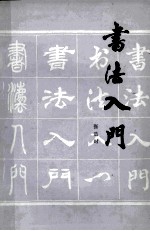 書法入門
書法入門
书法入门
書法入門
書灋入門